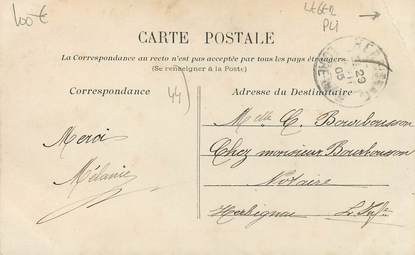 100€
LEGER
PLI
CARTE POSTALE
La Correspondance au recto n'est pas acceptée par tous les pays étrangers
(Se renseigner à la Poste)
Correspondance
44
Adresse du Destinataire
Melle C. Bourbousson
Chez monsieur Bourbousson
Notaire
Herbignac L. Infre
Merci
Mélanie
29
05